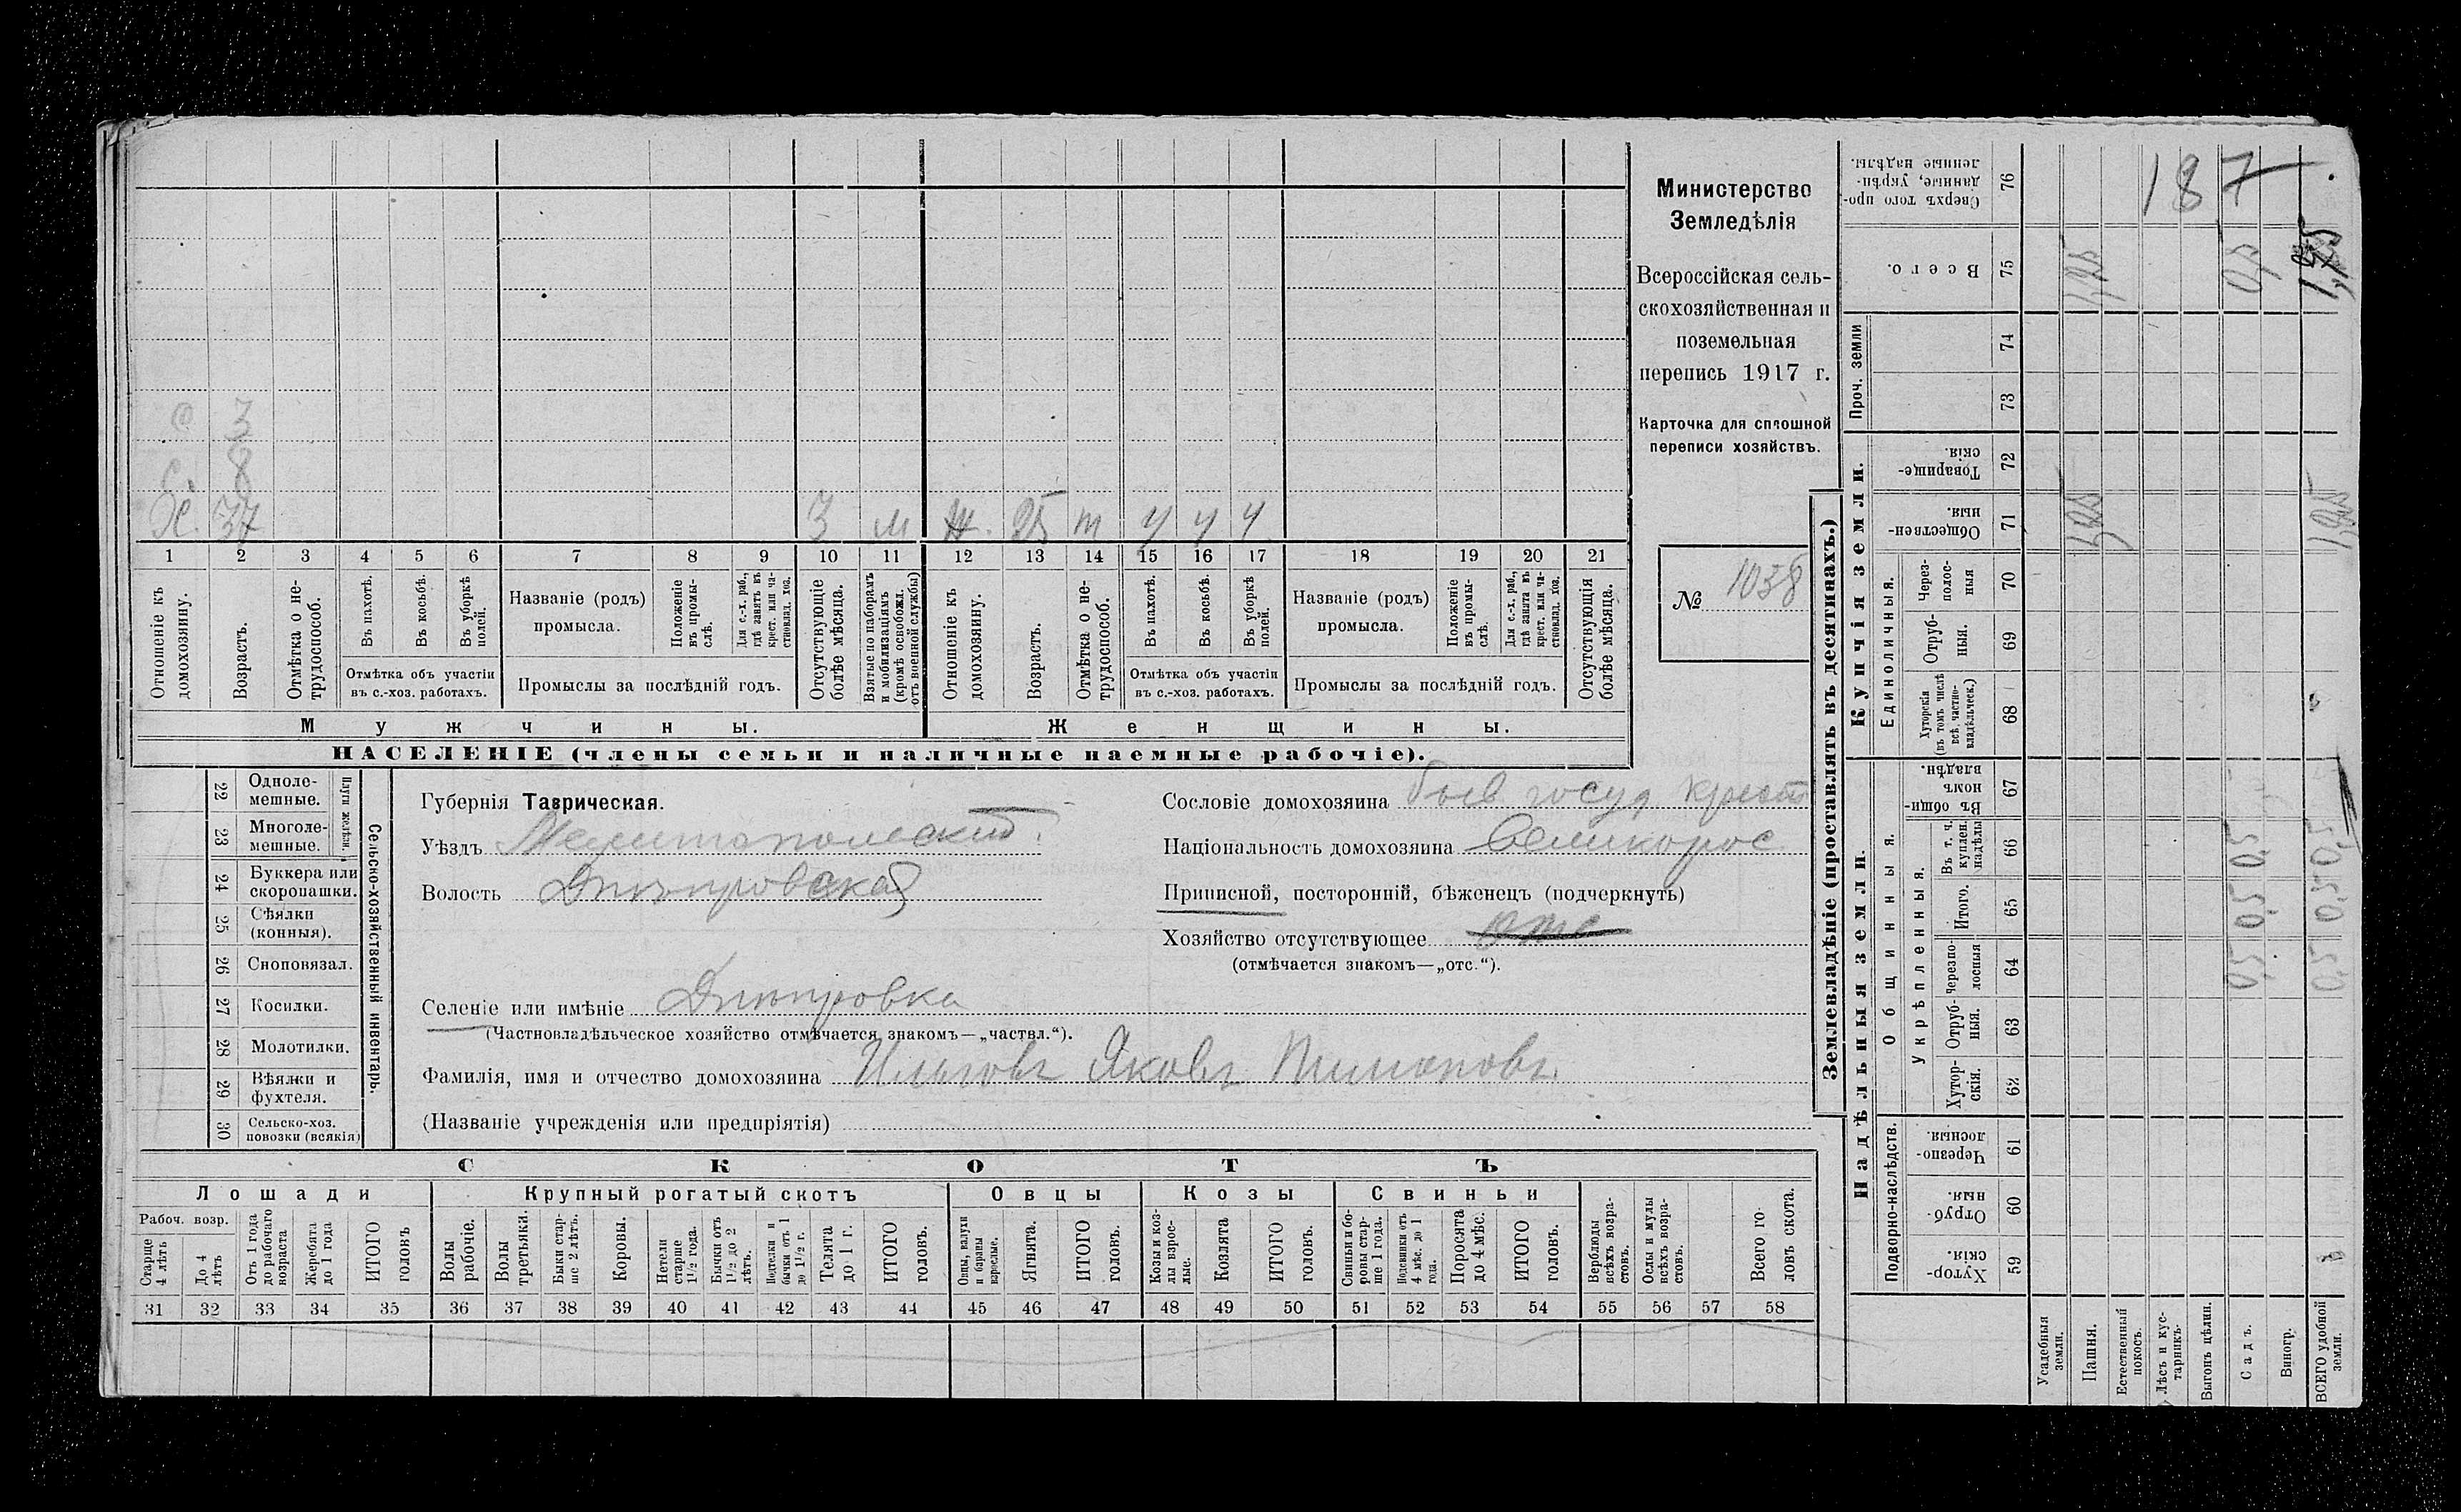 187
С 3
С 8
Х. 37 3 м Ж. 35 т ч ч ч
1 2 3 4 5 6 7 8 9 10 11 12 13 14 15 16 17 18 19 20 21
Отношеніе къ домохозяину.
Возрастъ.
Отмѣтка о не-
трудоспособ.
Въ пахотѣ.
Въ косьбѣ.
Въ уборкѣ полей.
Отмѣтка объ участіи
въ с.-хоз. работахъ.
Названіе (родъ)
промысла.
Положеніе въ промы-
слѣ.
Для с.-х. раб., гдѣ занятъ въ крест. или ча-
стновлад. хоз.
Промыслы за послѣдній годъ.
Отсутствующіе болѣе мѣсяца.
Взятые по наборамъ и мобилизаціямъ (кромѣ освобожд. отъ военной службы)
Отношеніе къ домохозяину.
Возрастъ.
Отмѣтка о не-
трудоспособ.
Въ пахотѣ.
Въ косьбѣ.
Въ уборкѣ полей.
Отмѣтка объ участіи
въ с.-хоз. работахъ.
Названіе (родъ)
промысла.
Положеніе въ промы-
слѣ.
Для с.-х. раб., гдѣ занята въ крест. или ча-
стновлад. хоз.
Промыслы за послѣдній годъ.
Отсутствующія болѣе мѣсяца.
Мужчины. Женщины.
НАСЕЛЕНІЕ (члены семьи и наличные наемные рабочіе).
Министерство
Земледѣлія
Всероссійская сель-
скохозяйственная и
поземельная
перепись 1917 г.
Карточка для сплошной
переписи хозяйствъ.
№ 1038
Сельско-хозяйственный инвентарь.
Плуги желѣзн.
22 Одноле-
мешные.
23 Многоле-
мешные.
24 Буккера или
скоропашки.
25 Сѣялки
(конныя).
26 Сноповязал.
27 Косилки.
28 Молотилки.
29 Вѣялки и
фухтеля.
30 Сельско-хоз.
повозки (всякія)
Губернія Таврическая.
Уѣздъ Мелитопольский
Волость Днѣпровская
Селеніе или имѣніе Днѣпровка
(Частновладѣльческое хозяйство отмѣчается знакомъ—„частвл.“).
Фамилія, имя и отчество домохозяина Ильговъ Яковъ Тимоновъ
(Названіе учрежденія или предпріятія)
Сословіе домохозяина быв госуд крест
Національность домохозяина Великорос
Приписной, посторонній, бѣженецъ (подчеркнуть)
Хозяйство отсутствующее отс
(отмѣчается знакомъ—„отс.“).
СКОТЪ
Лошади Крупный рогатый скотъ Овцы Козы Свиньи
Рабоч. возр.
Старше 4 лѣтъ
До 4 лѣтъ
Отъ 1 года до рабочаго возраста
Жеребята до 1 года
ИТОГО головъ
Волы рабочіе.
Волы третьяки.
Быки стар-
ше 2 лѣтъ.
Коровы.
Нетели старше 1½ года.
Бычки отъ 1½ до 2 лѣтъ.
Подтелки и бычки отъ 1 до 1½ г.
Телята до 1 г.
ИТОГО головъ.
Овцы, валухи и бараны взрослые.
Ягнята.
ИТОГО головъ.
Козы и коз-
лы взрос-
лые.
Козлята
ИТОГО головъ.
Свиньи и бо-
ровы стар-
ше 1 года.
Подсвинки отъ 4 мѣс. до 1 года.
Поросята до 4 мѣс.
ИТОГО головъ.
Верблюды всѣхъ возра-
стовъ.
Ослы и мулы всѣхъ возра-
стовъ.
Всего го-
ловъ скота.
31 32 33 34 35 36 37 38 39 40 41 42 43 44 45 46 47 48 49 50 51 52 53 54 55 56 57 58
Землевладѣніе (проставлять въ десятинахъ.)
Надѣльныя земли.
Купчія земли.
Проч. земли
Подворно-наслѣдств.
Общинныя.
Укрѣпленныя.
Единоличныя.
Хутор-
скія. 59
Отруб-
ныя. 60
Черезпо-
лосныя. 61
Хутор-
скія. 62
Отруб-
ныя. 63
Черезпо-
лосныя 64
Итого. 65
Въ т. ч. куплен. надѣлы 66
Въ общин-
номъ владѣн. 67
Хуторскія (въ томъ числѣ всѣ частно-
владѣльческ.) 68
Отруб-
ныя. 69
Через-
полос-
ныя 70
Обществен-
ныя. 71
Товарище-
скія. 72
73
74
Всего. 75
Сверхъ того про-
данные, укрѣп-
ленные надѣлы. 76
Усадебныя земли.
Пашня.
Естественный покосъ.
Лѣсъ и кус-
тарникъ.
Выгонъ цѣлин.
Садъ. 0,5 0,5 0,5 0,5
Виногр.
ВСЕГО удобной земли. 0,5 0,5 0,5